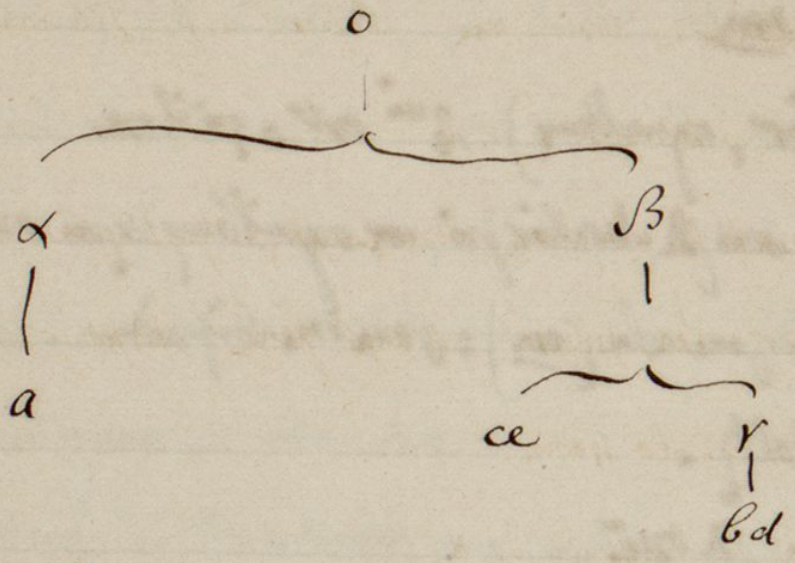 o
α β
a
ce γ
bd